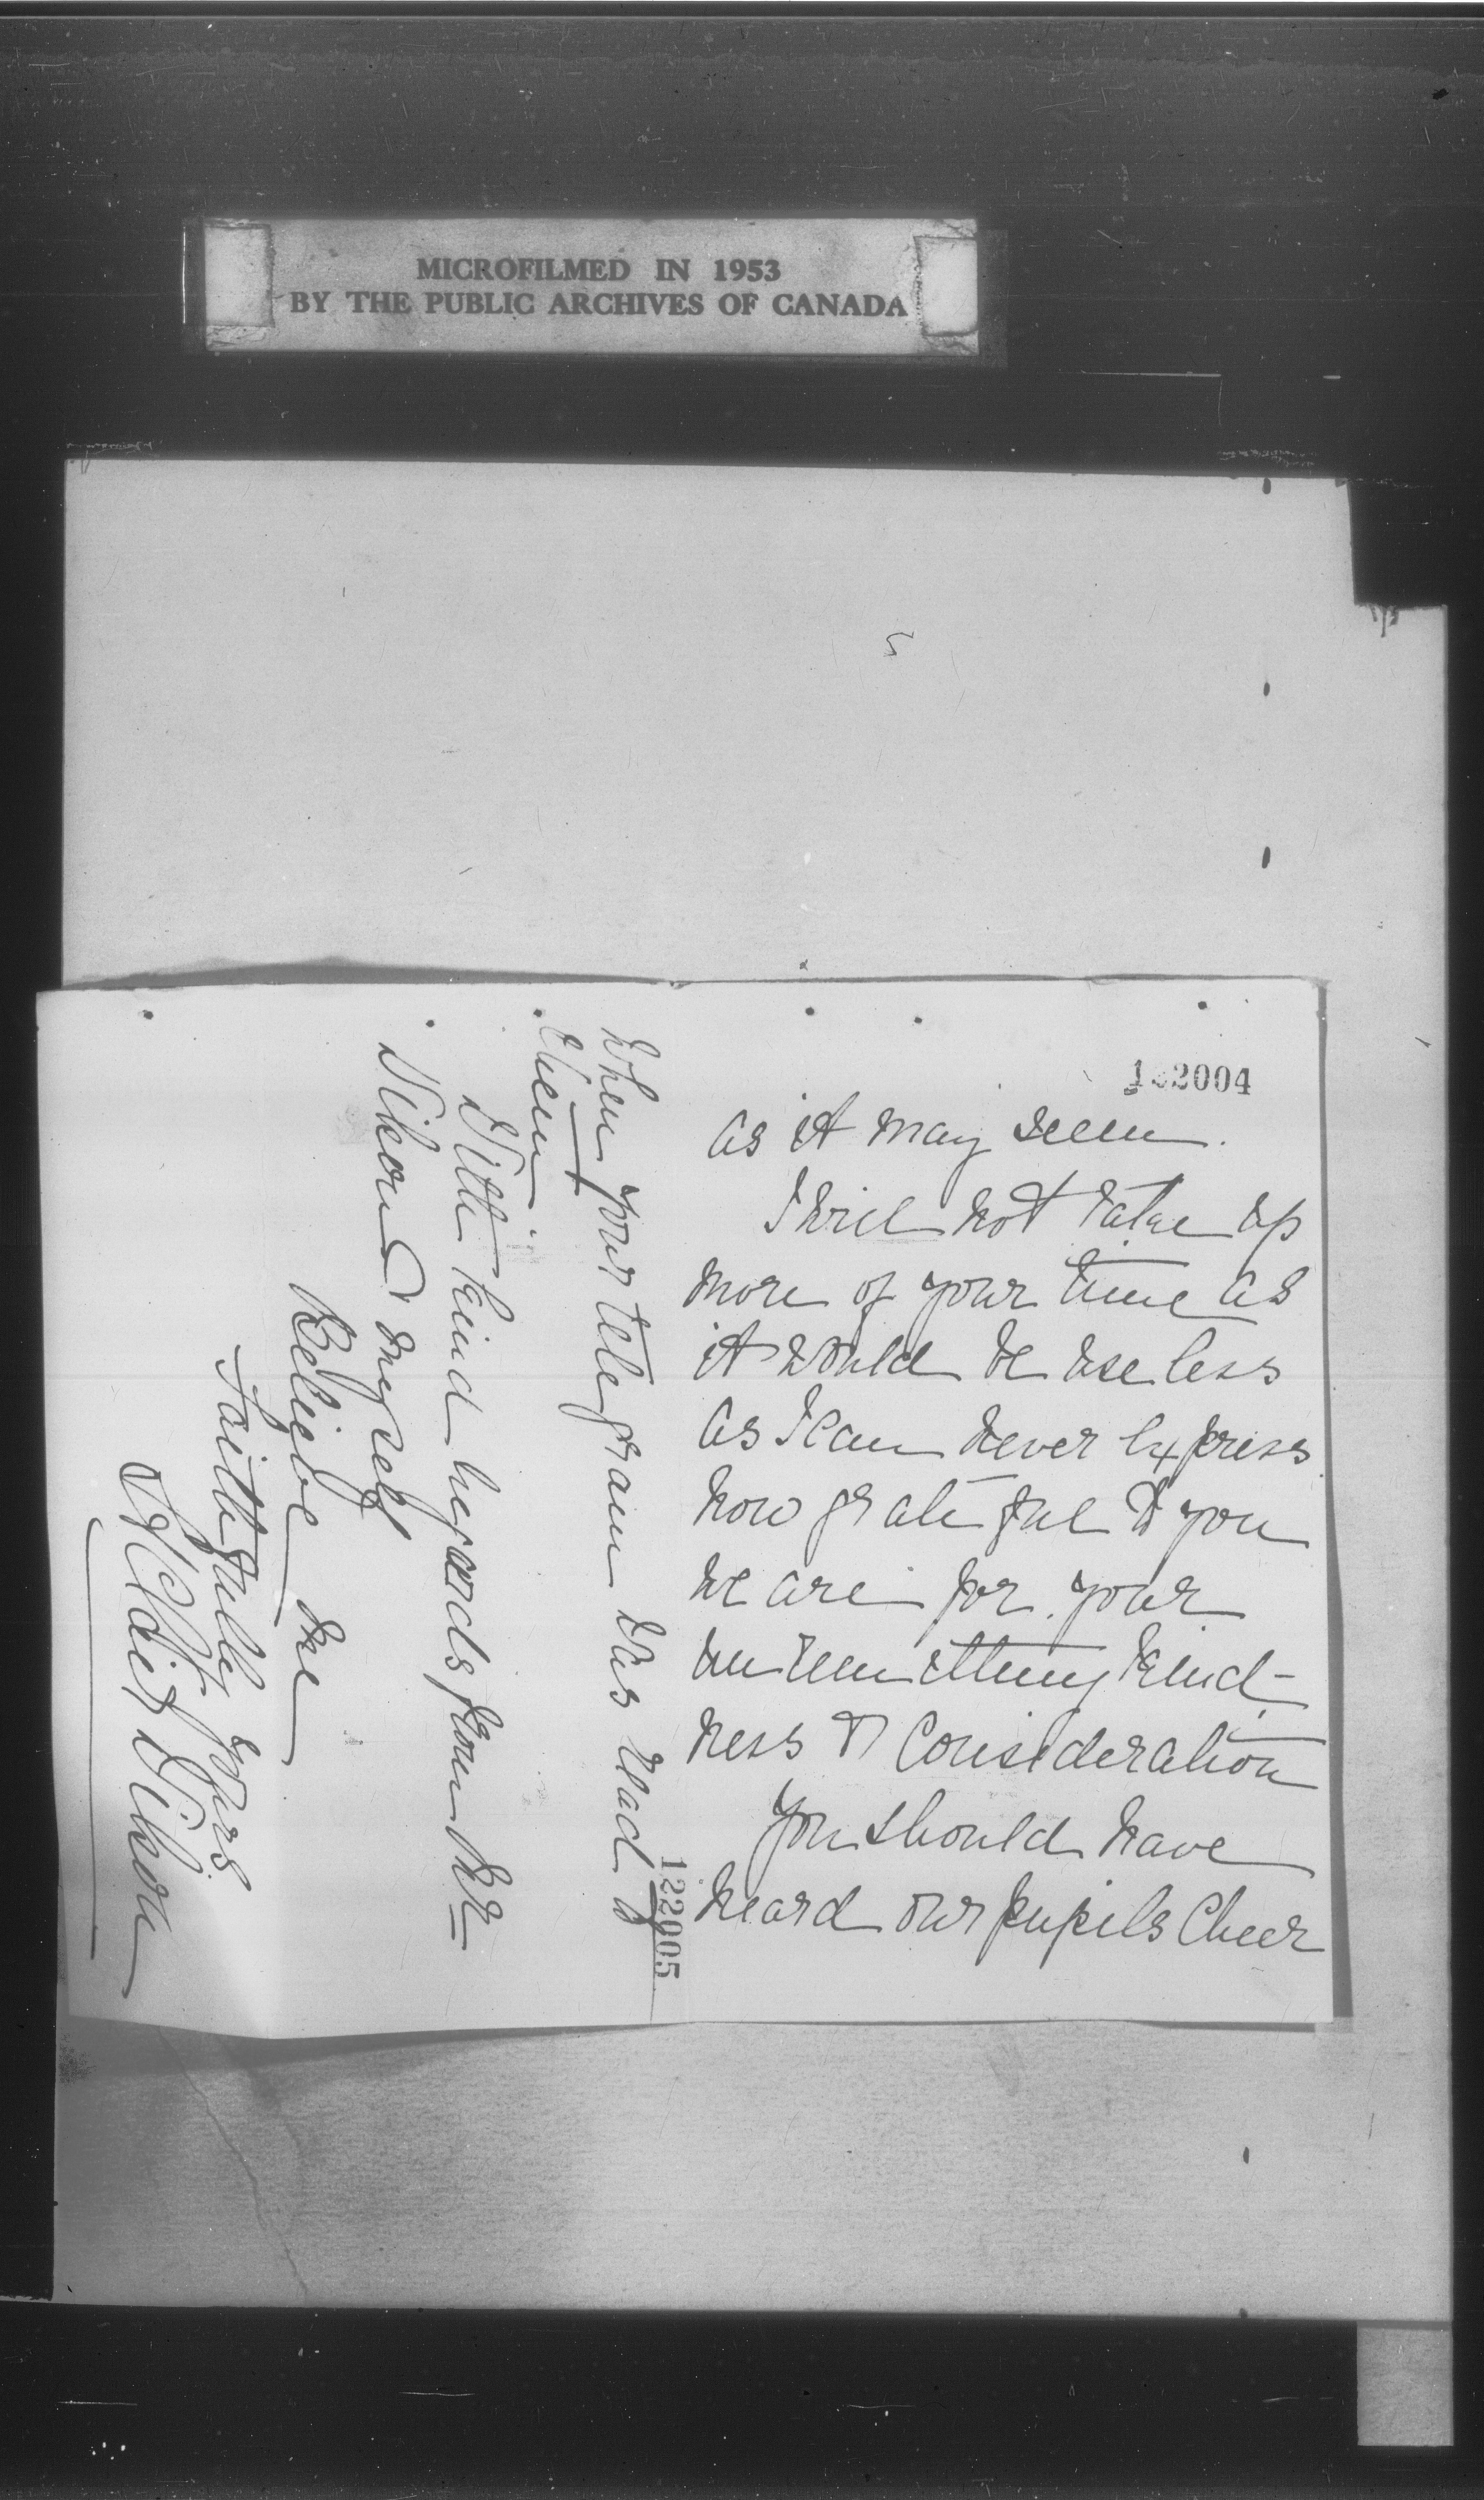 MICROFILMED IN 1953
BY THE PUBLIC ARCHIVES OF CANADA
122004
as it may seem.
I will not take up
more of your time as
it would be useless
as I can never express
how grateful to you
we are for your
unremitting kind-
ness & consideration
You should have
heard our pupils cheer
122005
when your telegram was read to
them.
With kind regards from Mr
Wilson & myself
Believe me
Faithfully yours
Wilson